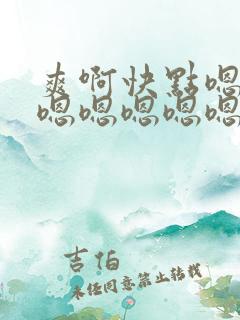 爽啊快點嗯
嗯嗯嗯嗯嗯
吉怕
未任同意禁止转载